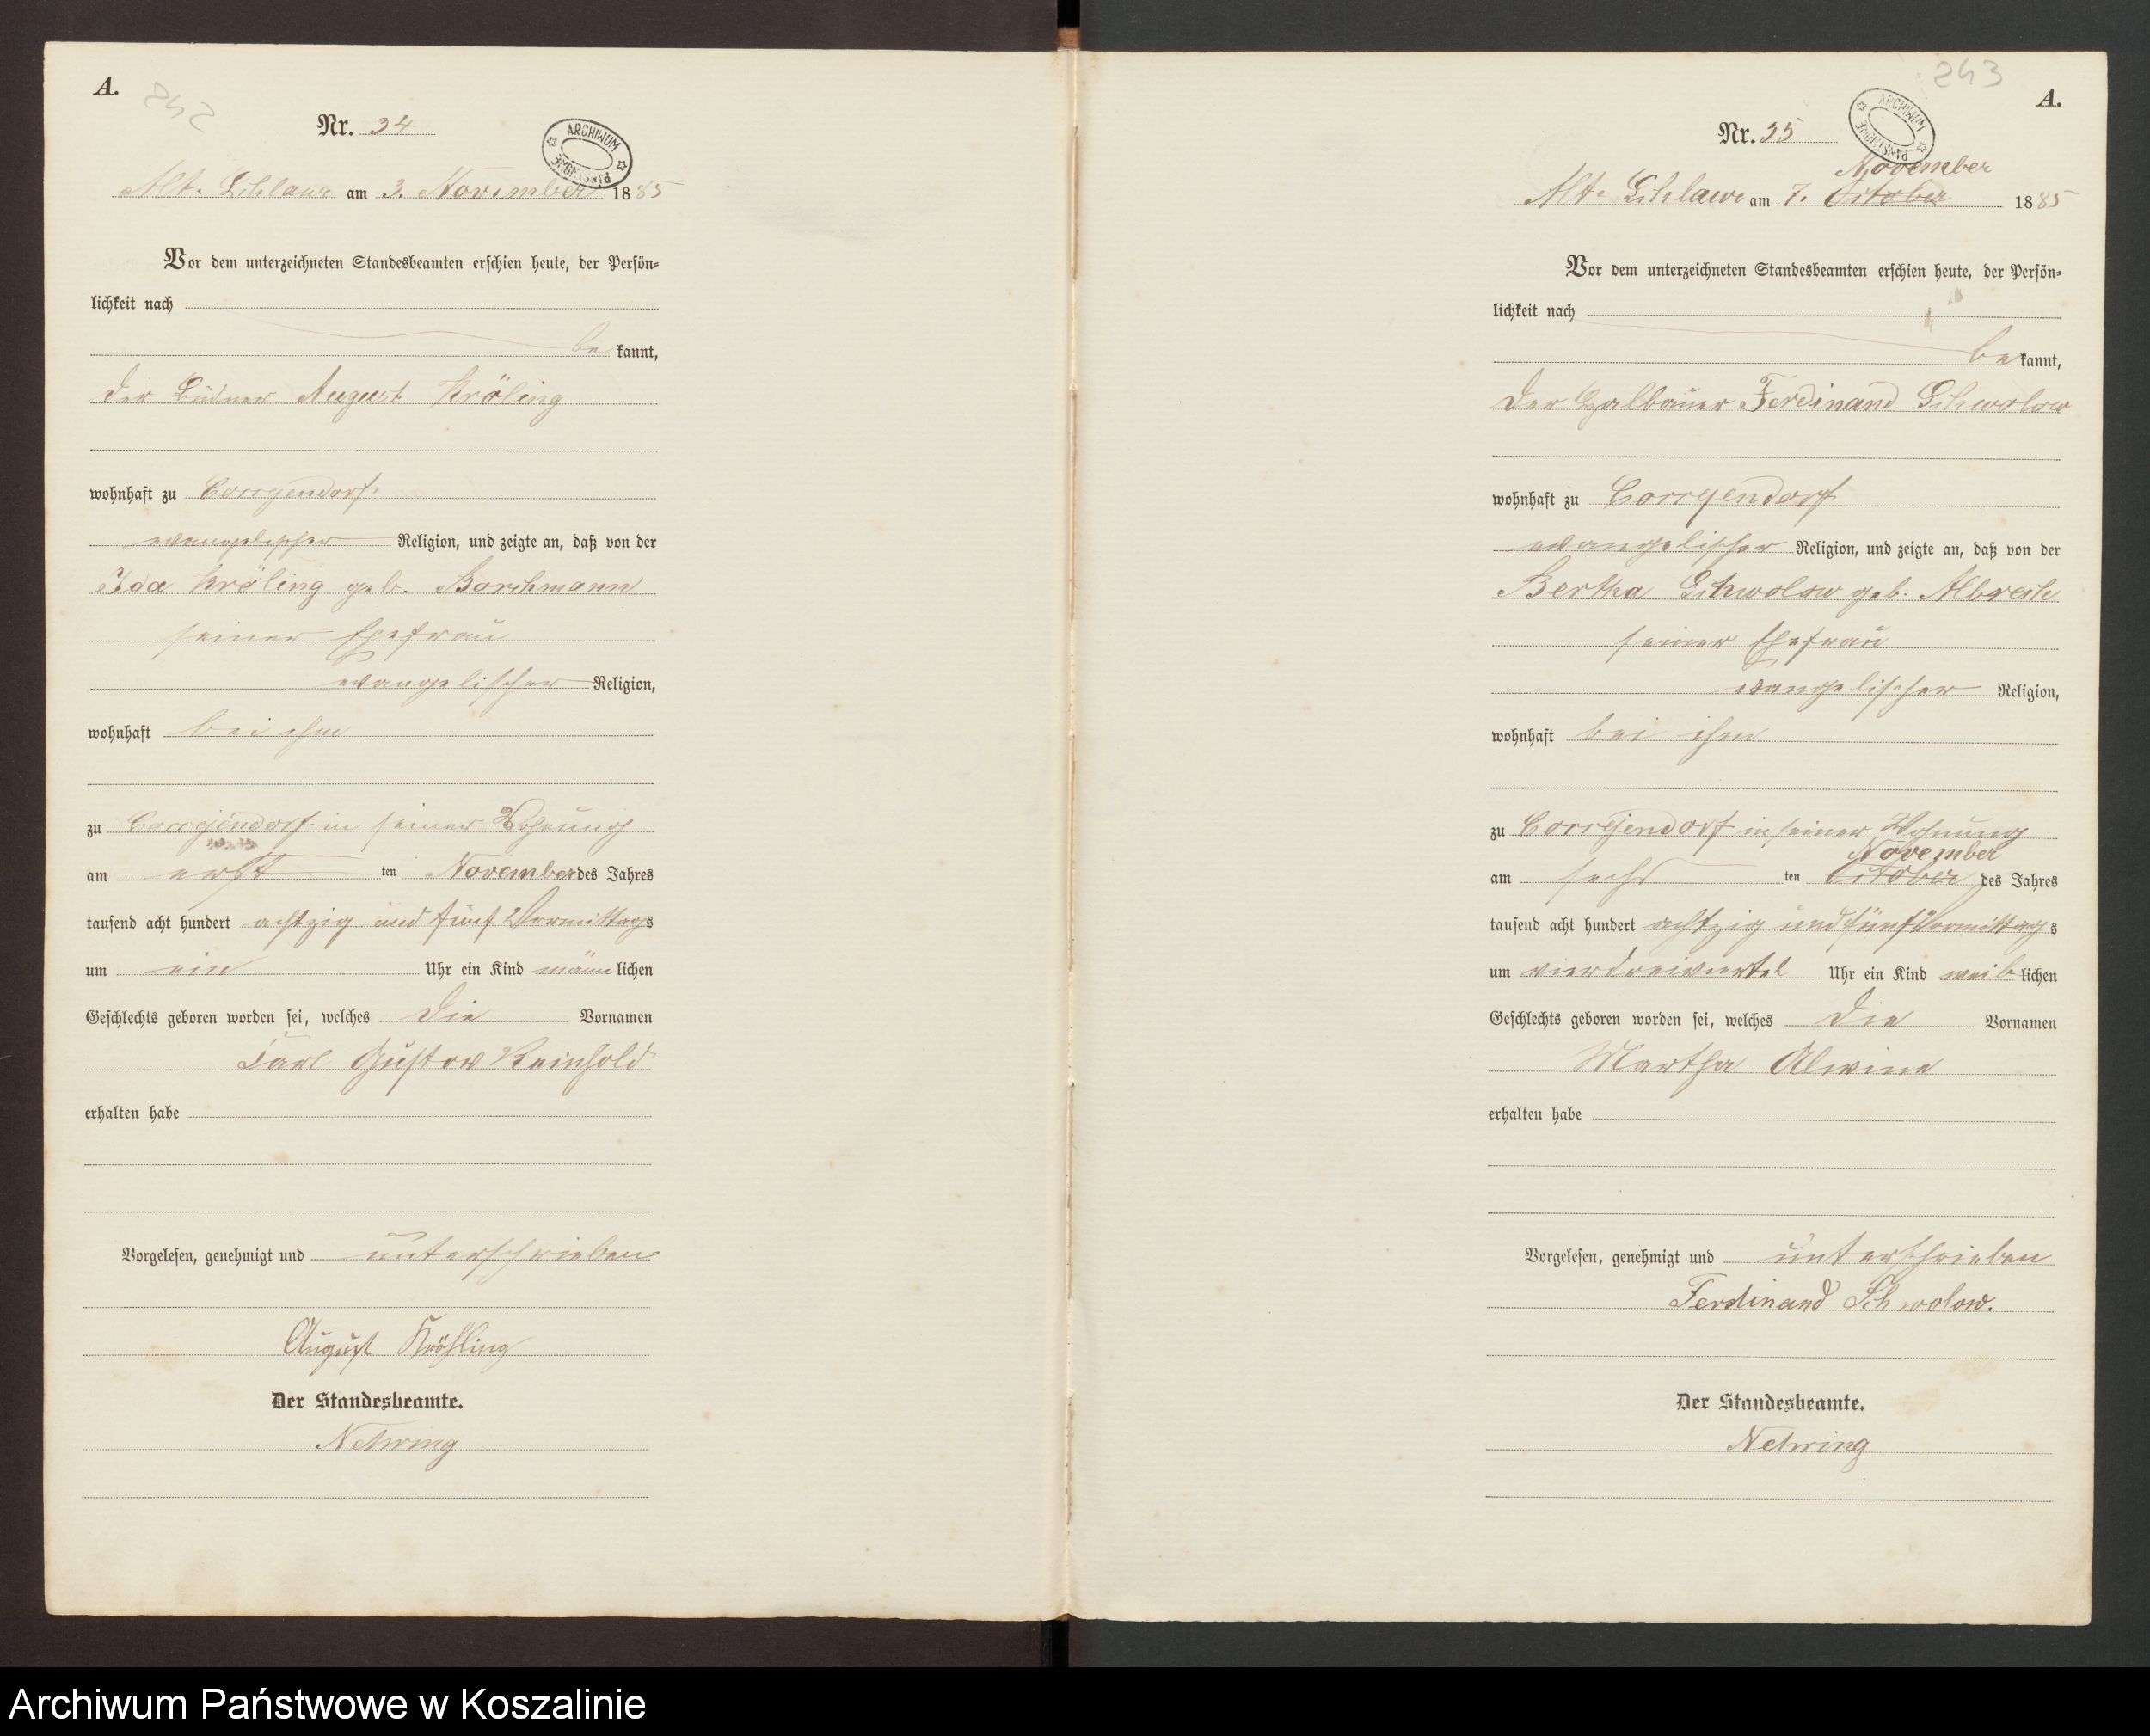 A.
242
Nr. 34
ARCHIWUM PAŃSTWOWE
Alt-Schlawe am 3. November 1885
Vor dem unterzeichneten Standesbeamten erschien heute, der Persön-
lichkeit nach
bekannt,
der Büdner August Kröling
wohnhaft zu Corrgendorf
evangelischer Religion, und zeigte an, daß von der
Ida Kröling geb. Borchmann
seiner Ehefrau
evangelischer Religion,
wohnhaft bei ihm
zu Corrgendorf in seiner Wohnung
am erst ten November des Jahres
tausend acht hundert achtzig und fünf Vormittags
um ein Uhr ein Kind männlichen
Geschlechts geboren worden sei, welches die Vornamen
Carl Gustav Reinhold
erhalten habe
Vorgelesen, genehmigt und unterschrieben
August Kröhling
Der Standesbeamte.
Nehring
243
A.
Nr. 35
ARCHIWUM PAŃSTWOWE
November
Alt-Schlawe am 7. October 1885
Vor dem unterzeichneten Standesbeamten erschien heute, der Persön-
lichkeit nach
bekannt,
der Halbauer Ferdinand Schwolow
wohnhaft zu Corrgendorf
evangelischer Religion, und zeigte an, daß von der
Bertha Schwolow geb. Albrech
seiner Ehefrau
evangelischer Religion,
wohnhaft bei ihm
zu Corrgendorf in seiner Wohnung
November
am sechs ten October des Jahres
tausend acht hundert achtzig und fünf Vormittags
um vier dreiviertel Uhr ein Kind weiblichen
Geschlechts geboren worden sei, welches die Vornamen
Martha Alwine
erhalten habe
Vorgelesen, genehmigt und unterschrieben
Ferdinand Schwolow.
Der Standesbeamte.
Nehring
Archiwum Państwowe w Koszalinie